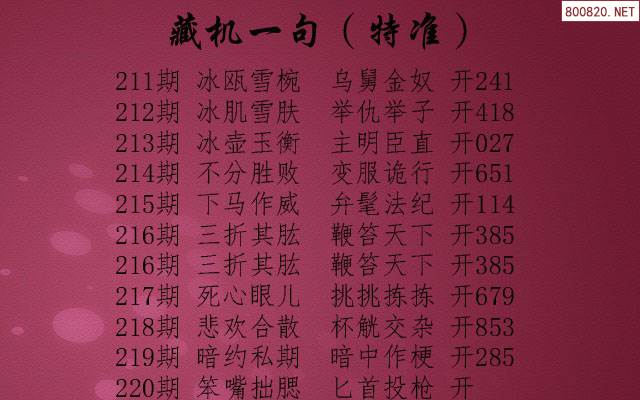 800820.NET
藏机一句（特准）
211期 冰瓯雪椀 乌舅金奴 开241
212期 冰肌雪肤 举仇举子 开418
213期 冰壶玉衡 主明臣直 开027
214期 不分胜败 变服诡行 开651
215期 下马作威 弁髦法纪 开114
216期 三折其肱 鞭笞天下 开385
216期 三折其肱 鞭笞天下 开385
217期 死心眼儿 挑挑拣拣 开679
218期 悲欢合散 杯觥交杂 开853
219期 暗约私期 暗中作梗 开285
220期 笨嘴拙腮 匕首投枪 开